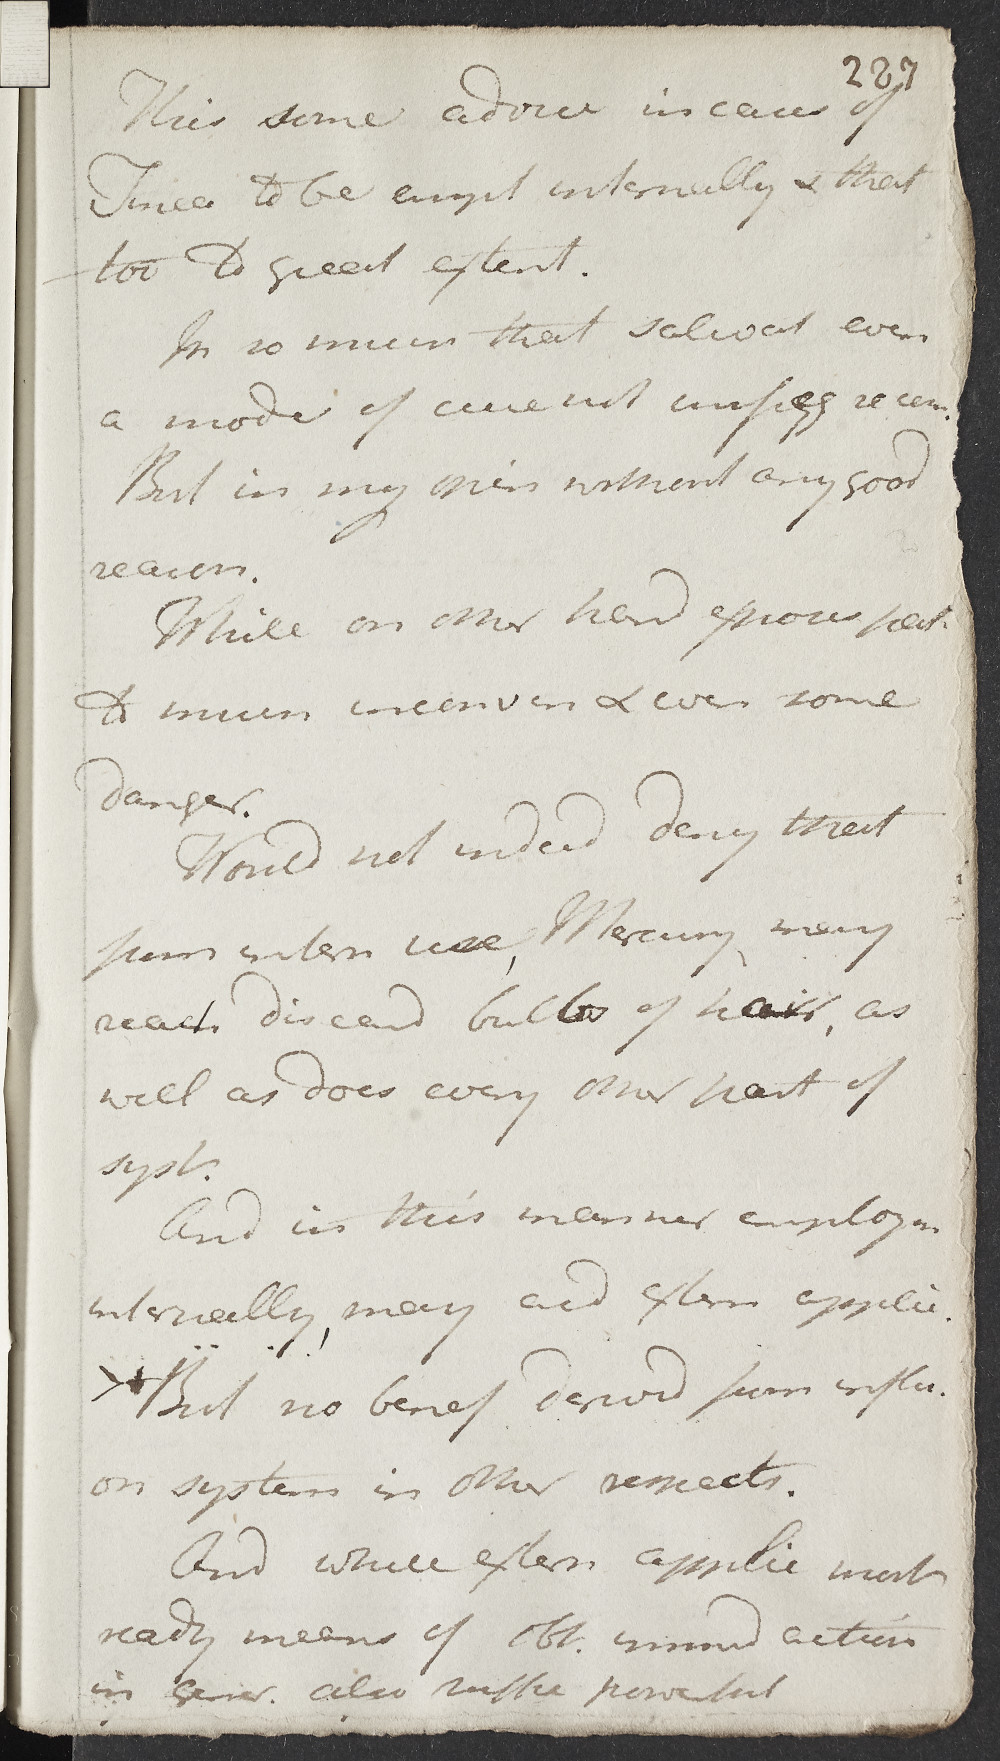 227
This some advise in cases of
Tinea to be empl internally & that
too to great extent.
In so much that salivat even
a mode of cure not unfreq recom.
But in my opin without any good
reason.
While on other hand exposes pat.
to much inconven & even some
danger.
Would not indeed deny that
from intern use, Mercury may
reach diseasd bulbs of hair, as
well as does every other part of
syst.
And in this manner employ
internally, may aid extern applic.
But no benef derivd from influ.
on system in other respects.
And while extern applic most
ready means of obt. immed action
in gener. also suffic powerful